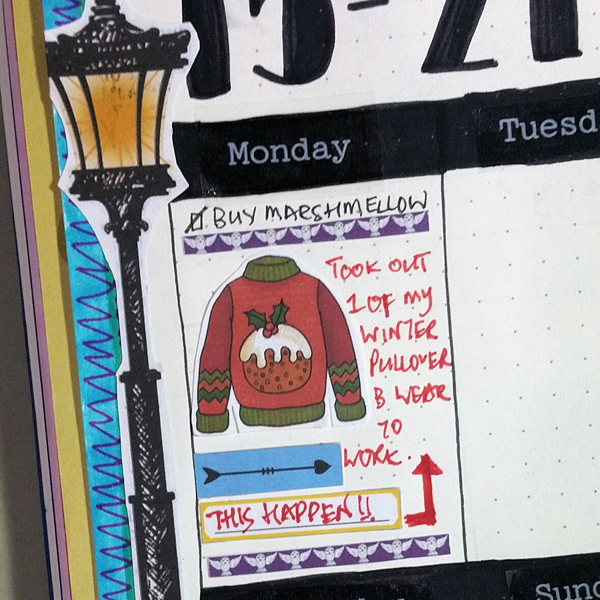 15-21
Monday
Tuesd
BUY MARSHMELLOW
TOOK OUT
1 OF MY
WINTER
PULLOVER
& WEAR
TO
WORK.
THIS HAPPEN!!
Sund